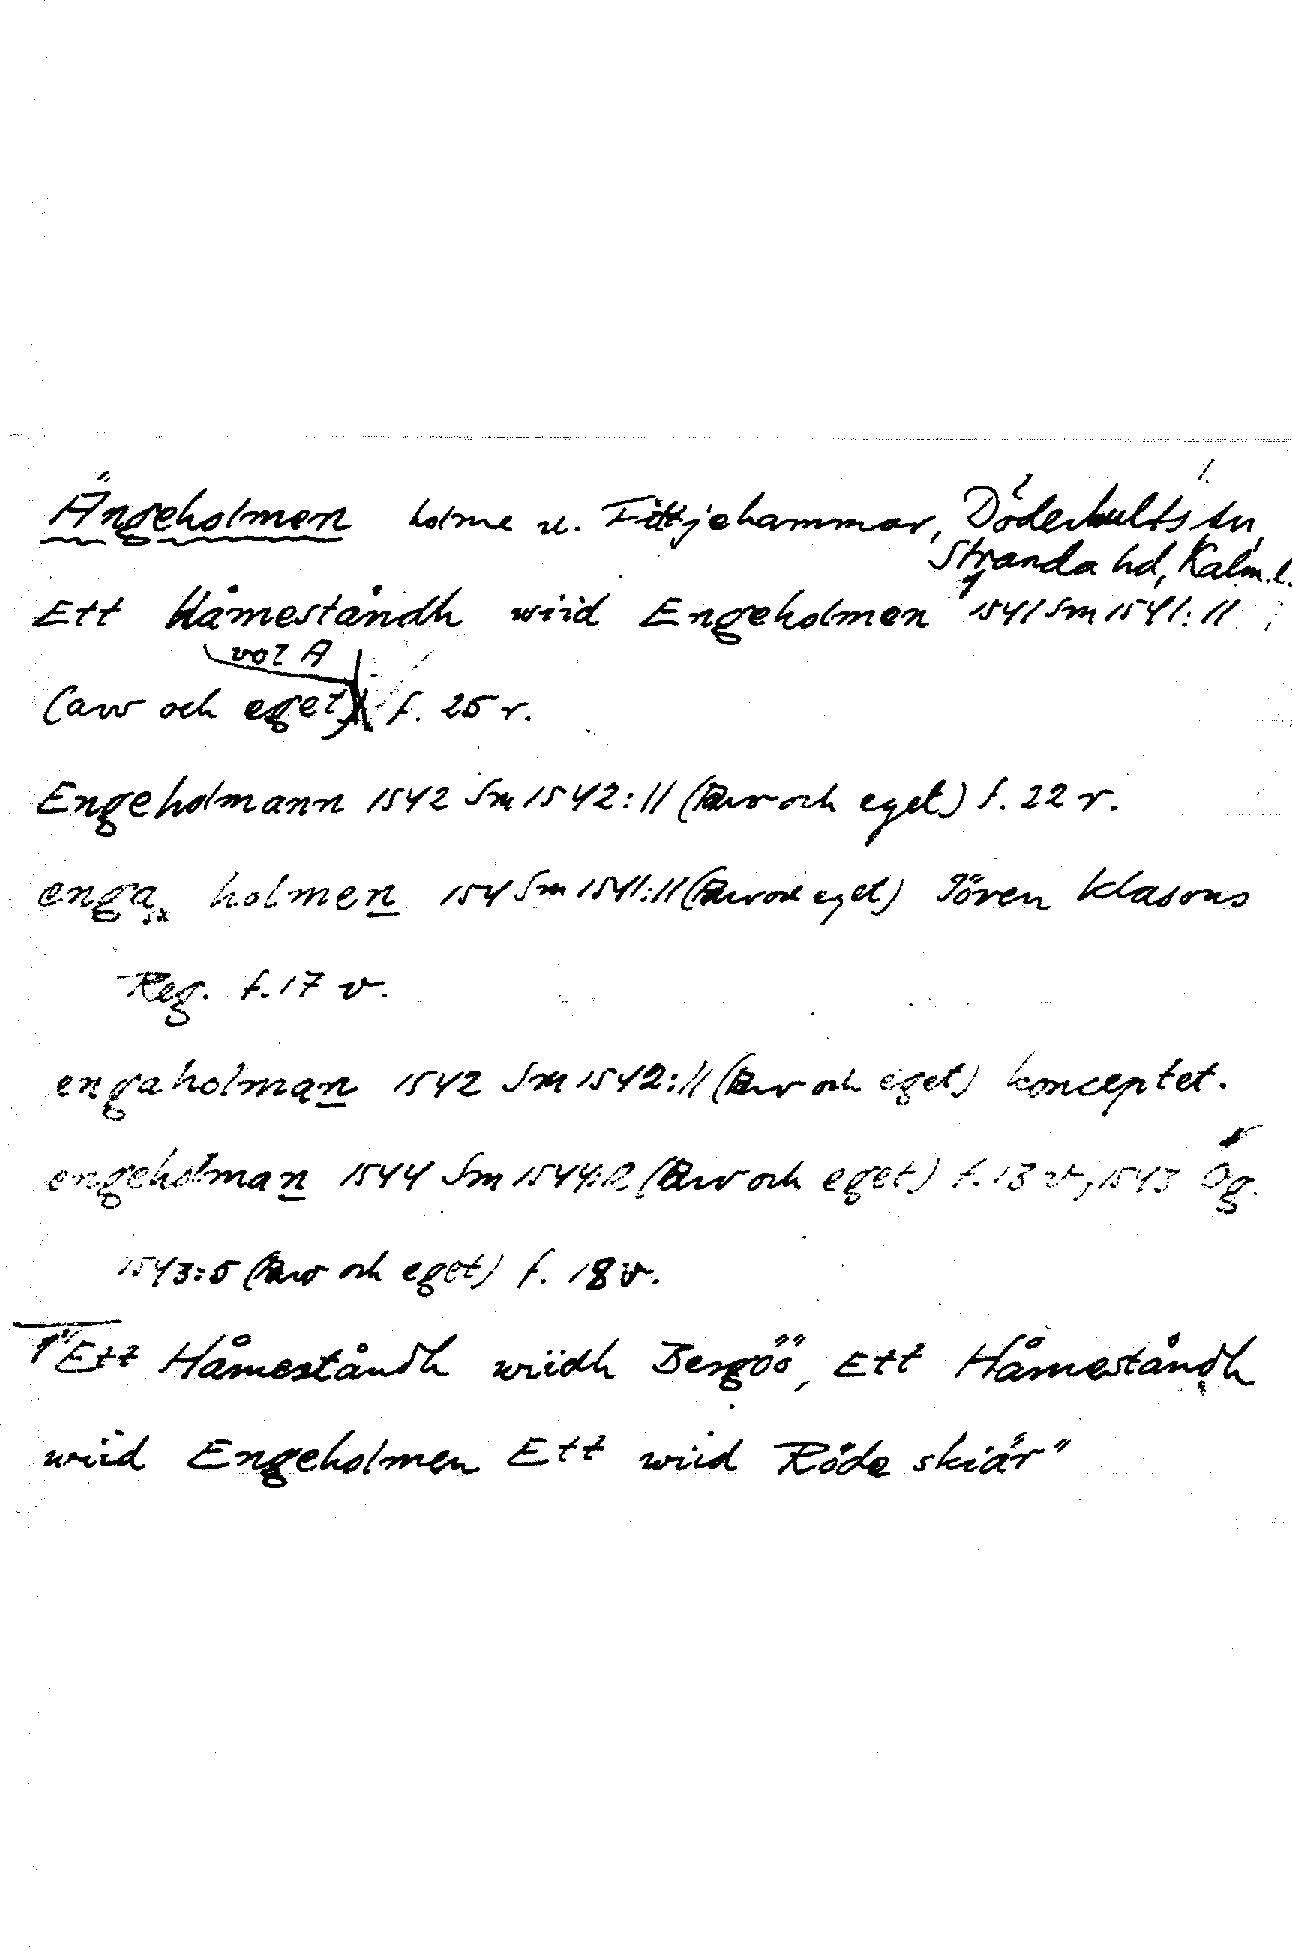 Ängeholmen holme u. Fittjehammar, Döderhults sn,
Stranda hd, Kalm. l.
Ett Håmeståndh wiid Engeholmen 1541 Sm 1541:11
vol A
(arv och eget) f. 25 r.
Engeholmann 1542 Sm 1542:11 (Arv och eget) f. 22 r.
enga holmen 154 Sm 1541:11 (Arv och eget) Jören Klasons
Reg. f. 17 v.
engaholman 1542 Sm 1542:11 (Arv och eget) konceptet.
engeholman 1544 Sm 1544: (Arv och eget) f. 13 v, 1543 Ög.
1543:5 (Arv och eget) f. 18 v.
1 "Ett Håmeståndh wiidh Bergöö, Ett Håmeståndh
wiid Engeholmen Ett wiid Röde skiär"